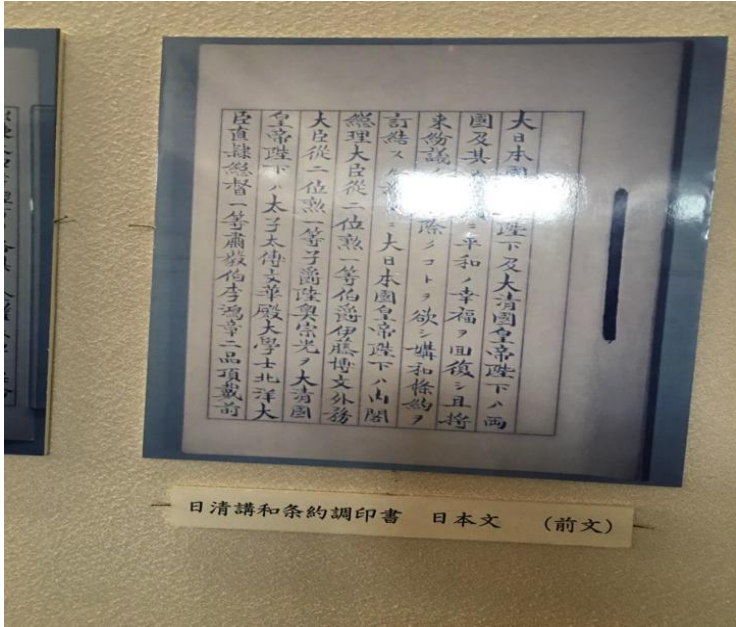 大日本國
陛下及大清國皇帝陛下ハ両
國及其
ニ平和ノ幸福ヲ回復シ且將
來紛議
除クコトヲ欲シ媾和條約ヲ
訂結ス
大日本國皇帝陛下ハ內閣
總理大臣從二位勲一等伯爵伊藤博文外務
大臣從二位勲一等子爵陸奥宗光ヲ大清國
皇帝陛下ハ太子太傅文華殿大學士北洋大
臣直隸總督一等肅毅伯李鴻章二品頂戴前
日清講和条約調印書 日本文 (前文)